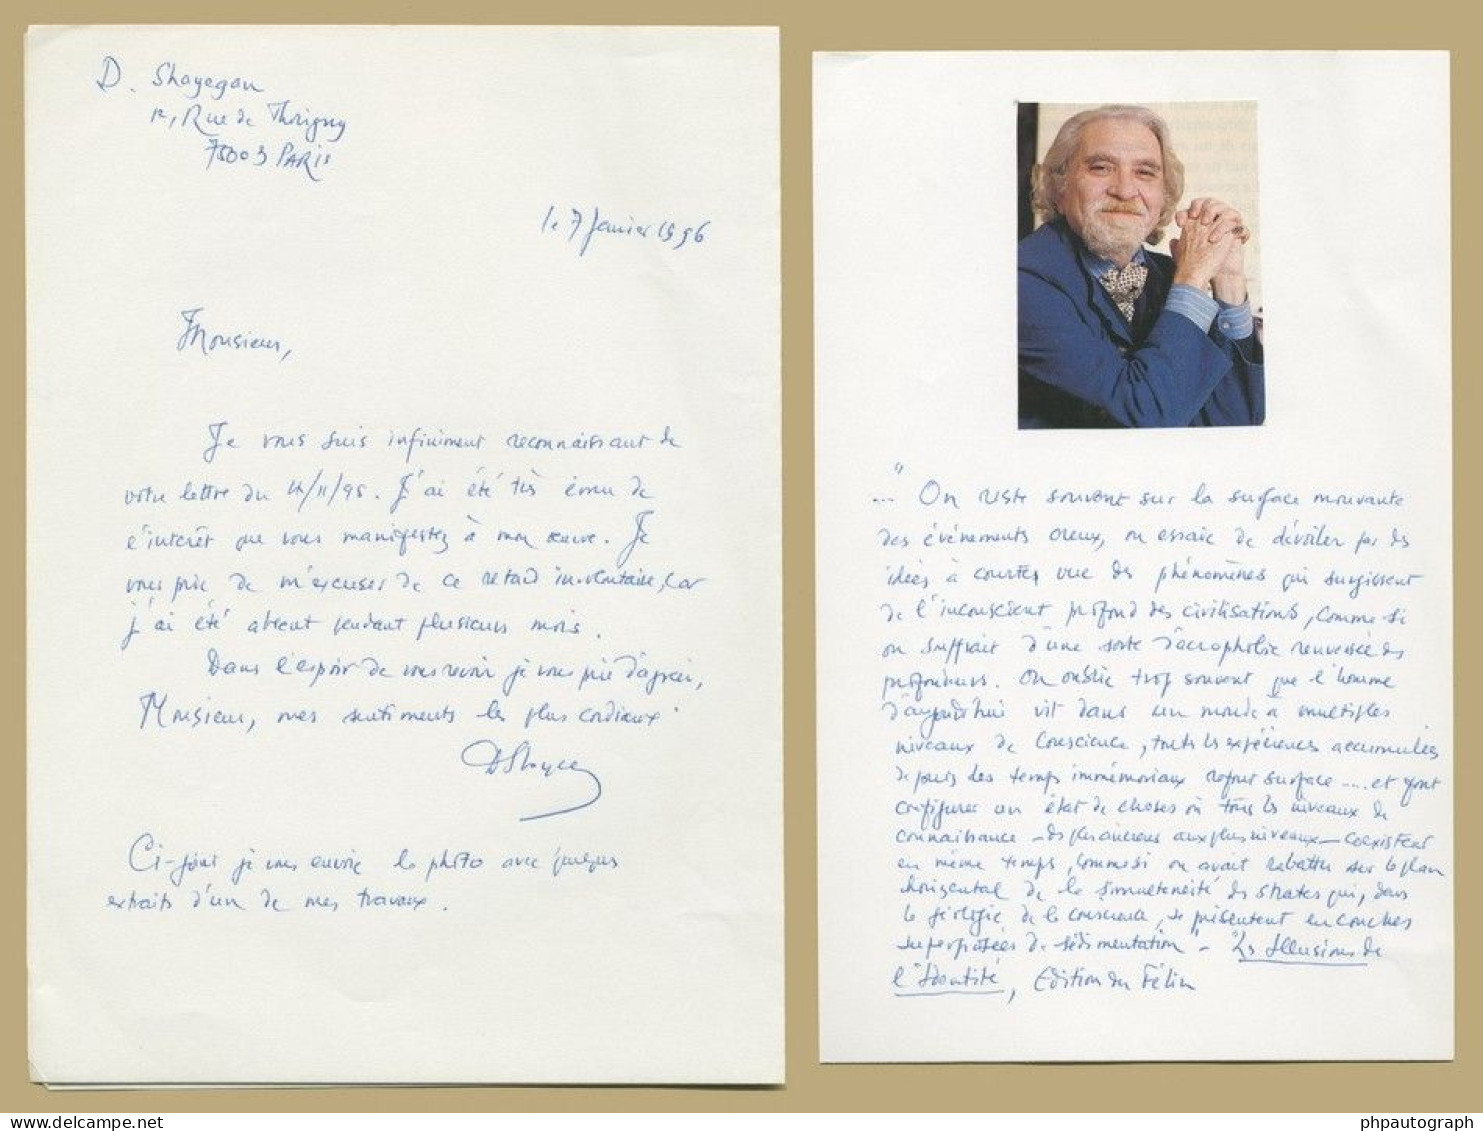 D. Shayegan
12, Rue de Thorigny
75003 PARIS
le 7 Janvier 1996
Monsieur,
Je vous suis infiniment reconnaissant de
votre lettre du 4/11/95. J'ai été très ému de
l'intérêt que vous manifestez à mon œuvre. Je
vous prie de m'excuser de ce retard involontaire, car
j'ai été absent pendant plusieurs mois.
Dans l'espoir de vous revoir je vous prie d'agréer,
Monsieur, mes sentiments les plus cordiaux.
DShayegan
Ci-joint je vous envoie la photo avec quelques
extraits d'un de mes travaux.
"
... On reste souvent sur la surface mouvante
des événements creux, on essaie de dévoiler par des
idées à courtes vue des phénomènes qui surgissent
de l'inconscient profond des civilisations, comme si
on suffrait d'une sorte d'acrophobie renversée des
profondeurs. On oublie trop souvent que l'homme
d'aujourd'hui vit dans un monde à multiples
niveaux de Conscience, toutes les expériences accumulées
depuis des temps immémoriaux refont surface..... et font
configurer un état de choses où tous les niveaux de
connaissance – des plus anciens aux plus nouveaux – coexistent
en même temps, comme si on avait rabattu sur le plan
horizontal de la simultanéité des strates qui, dans
la géologie de la conscience, se présentent en couches
superposées de sédimentation" – "Les Illusions de
l'Identité, Edition du Félin
phpautograph